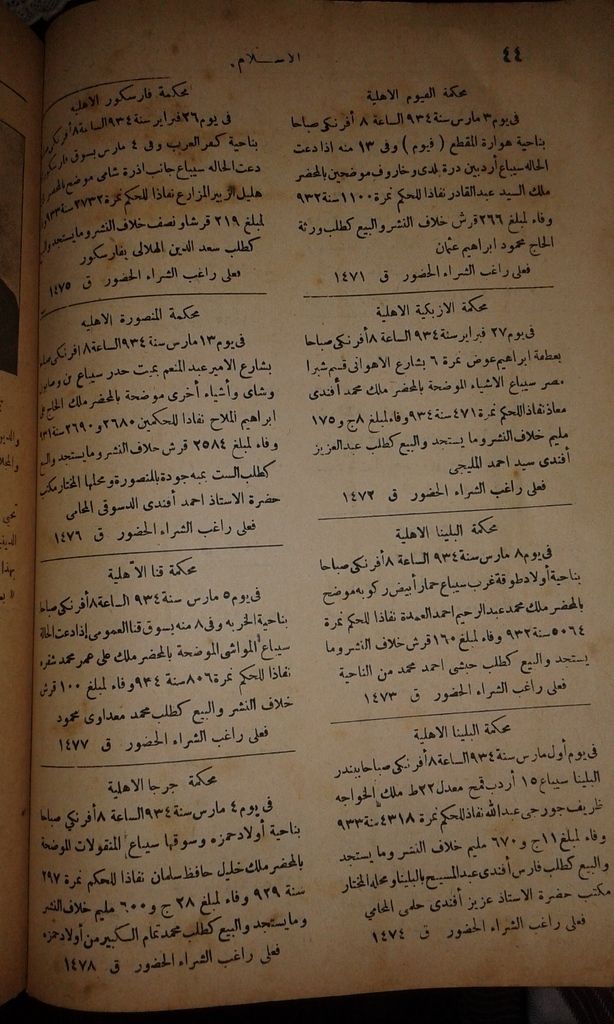 ٤٤
الاسلام.
محكمة الفيوم الاهلية
فى يوم ٣ مارس سنة ٩٣٤ الساعة ٨ أفرنكى صباحا
بناحية هوارة المقطع ( فيوم ) وفى ١٣ منه اذا دعت
الحاله سيباع أردبين درة بلدى وخاروف موضحين بالمحضر
ملك السيد عبد القادر نفاذا للحكم نمرة ١١٠٠ سنة ٩٣٢
وفاء لمبلغ ٢٦٦ قرش خلاف النشر والبيع كطلب ورثة
الحاج محمود ابراهيم عثمان
فعلى راغب الشراء الحضور ق ١٤٧١
محكمة الازبكية الاهلية
فى يوم ٢٧ فبراير سنة ٩٣٤ الساعة ٨ أفرنكى صباحا
بعطفة ابراهيم عوض نمرة ٦ بشارع الاهوانى قسم شبرا
مصر سيباع الاشياء الموضحة بالمحضر ملك محمد أفندى
معاذ نفاذا للحكم نمرة ٤٧١ سنة ٩٣٤ وفاء لمبلغ ٨ ج و ١٧٥
مليم خلاف النشر وما يستجد والبيع كطلب عبد العزيز
أفندى سيد احمد المليجى
فعلى راغب الشراء الحضور ق ١٤٧٢
محكمة البلينا الاهلية
فى يوم ٨ مارس سنة ٩٣٤ الساعة ٨ أفرنكى صباحا
بناحية أولاد طوقة غرب سيباع حمار أبيض ركوبه موضح
بالمحضر ملك محمد عبد الرحيم احمد العمدة نفاذا للحكم نمرة
٥٠٦٤ سنة ٩٣٢ وفاء لمبلغ ١٦٠ قرش خلاف النشر وما
يستجد والبيع كطلب حبشى احمد محمد من الناحية
فعلى راغب الشراء الحضور ق ١٤٧٣
محكمة البلينا الاهلية
فى يوم أول مارس سنة ٩٣٤ الساعة ٨ أفرنكى صباحا ببندر
البلينا سيباع ١٥ أردب قمح معدل ٢٢ ط ملك الخواجه
ظريف جورجى عبد الله نفاذا للحكم نمرة ٤٣١٨ سنة ٩٣٣
وفاء لمبلغ ١١ ج و ٦٧٠ مليم خلاف النشر وما يستجد
والبيع كطلب فارس أفندى عبد المسيح بالبلينا ومحله المختار
مكتب حضرة الاستاذ عزيز أفندى حلمى المحامى
فعلى راغب الشراء الحضور ق ١٤٧٤
محكمة فارسكور الاهليه
فى يوم ٢٦ فبراير سنة ٩٣٤ الساعة ٨ أفرنكى
بناحية كفر العرب وفى ٤ مارس بسوق فارسكور
دعت الحاله سيباع جانب اذرة شامى موضح بالمحضر
هليل الزبير المزارع نفاذا للحكم نمرة ٢٧٣٢ سنة ٩٣٣
لمبلغ ٢١٩ قرشا ونصف خلاف النشر وما يستجد والبيع
كطلب سعد الدين الهلالى بفارسكور
فعلى راغب الشراء الحضور ق ١٤٧٥
محكمة المنصورة الاهليه
فى يوم ١٣ مارس سنة ٩٣٤ الساعة ٨ افرنكى صباحا
بشارع الامير عبد المنعم بميت حدر سيباع بن وصابون
وشاى وأشياء أخرى موضحة بالمحضر ملك الحاج على
ابراهيم الملاح نفاذا للحكمين ٢٦٨٠ و ٢٦٩٠ سنة ٩٣١
وفاء لمبلغ ٢٥٨٤ قرش خلاف النشر وما يستجد والبيع
كطلب الست بمبه جودة بالمنصورة ومحلها المختار مكتب
حضرة الاستاذ احمد أفندى الدسوقى المحامى
فعلى راغب الشراء الحضور ق ١٤٧٦
محكمة قنا الأهلية
فى يوم ٥ مارس سنة ٩٣٤ الساعة ٨ أفرنكى صباحا
بناحية الخربه وفى ٨ منه بسوق قنا العمومى إذا دعت الحالة
سيباع المواشى الموضحة بالمحضر ملك على عمر محمد شقره
نفاذا للحكم نمرة ٨٠٦ سنة ٩٣٤ وفاء لمبلغ ١٠٠ قرش
خلاف النشر والبيع كطلب محمد معداوى محمود
فعلى راغب الشراء الحضور ق ١٤٧٧
محكمة جرجا الاهلية
فى يوم ٤ مارس سنة ٩٣٤ الساعة ٨ أفرنكي صباحا
بناحية أولاد حمزه وسوقها سيباع المنقولات الموضحة
بالمحضر ملك خليل حافظ سلمان نفاذا للحكم نمرة ٢٩٧
سنة ٩٢٩ وفاء لمبلغ ٢٨ ج و ٦٠٠ مليم خلاف النشر
وما يستجد والبيع كطلب محمد تمام الكبير من أولاد حمزه
فعلى راغب الشراء الحضور ق ١٤٧٨